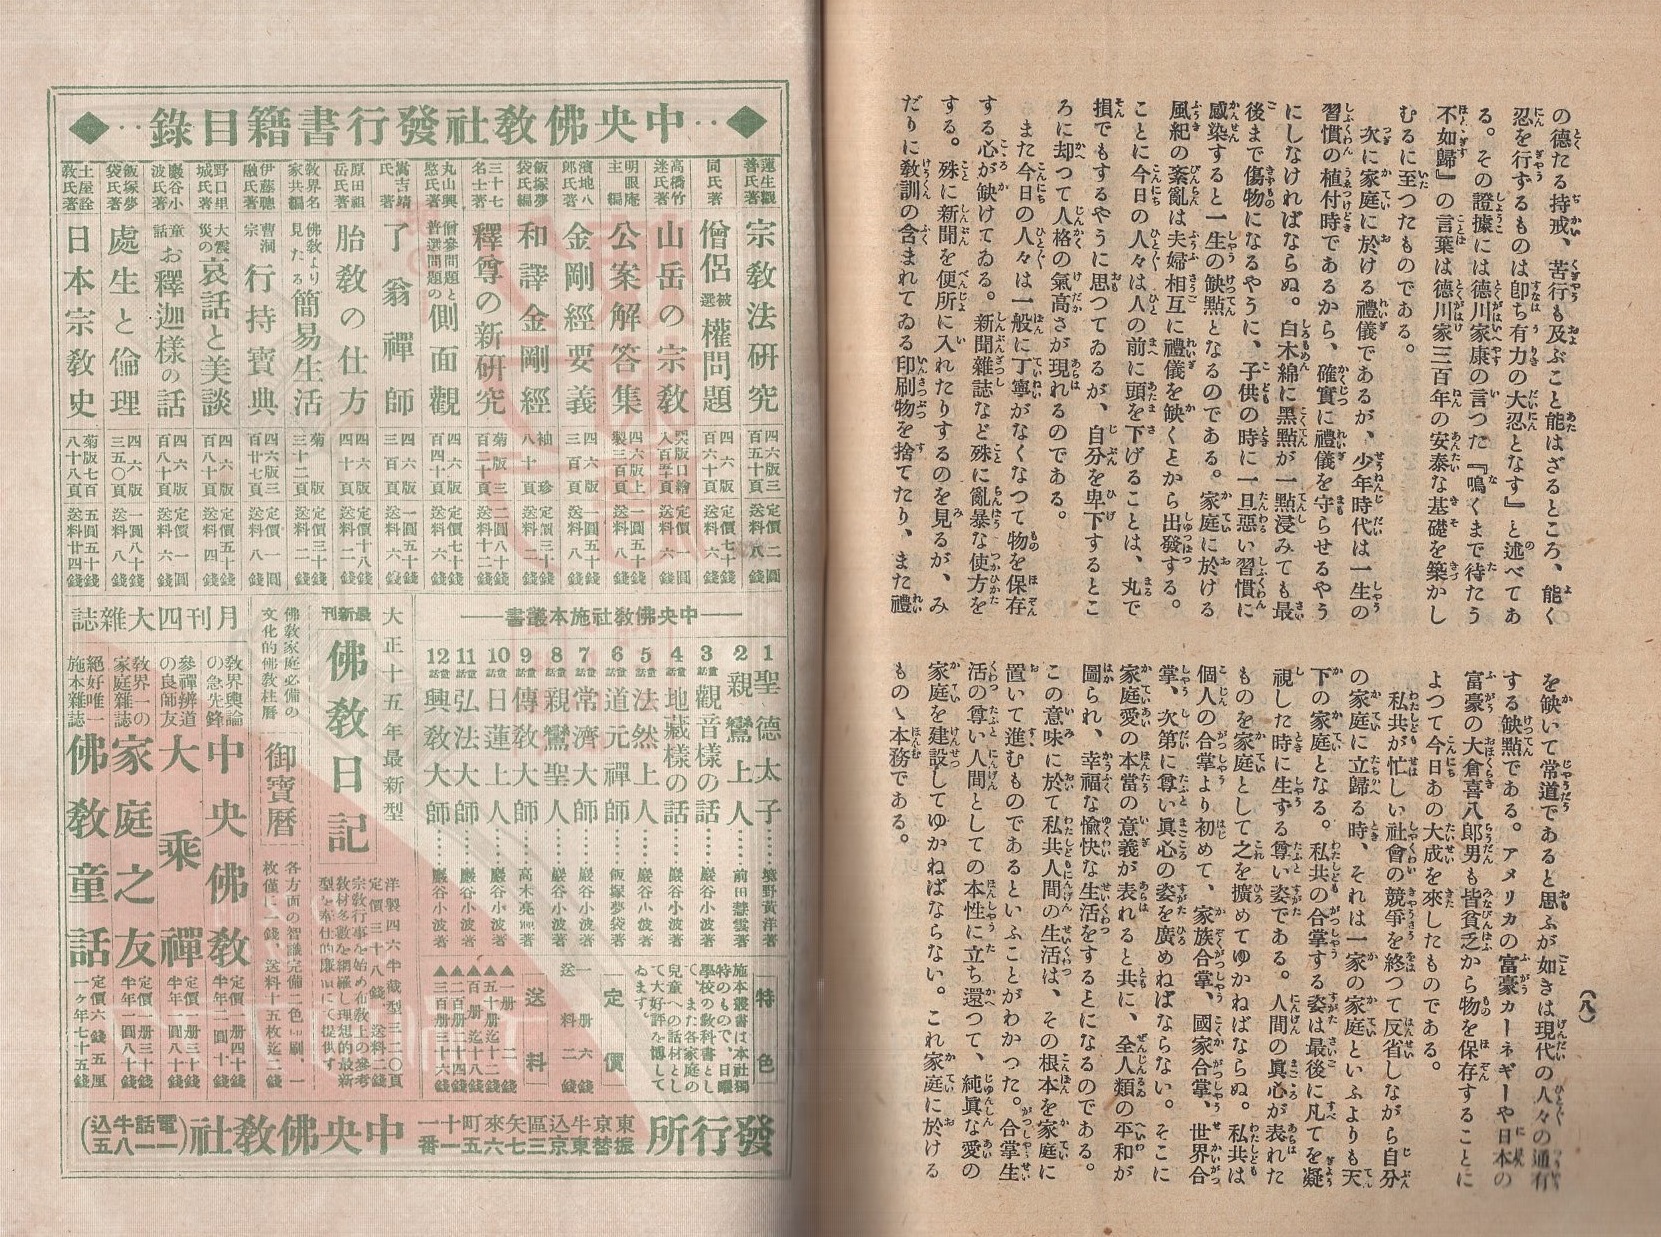 の德たる持戒、苦行も及ぶこと能はざるところ、能く
忍を行ずるものは卽ち有力の大忍となす』と述べてあ
る。その證據には德川家康の言つた『鳴くまで待たう
不如歸』の言葉は德川家三百年の安泰な基礎を築かし
むるに至つたものである。
次に家庭に於ける禮儀であるが、少年時代は一生の
習慣の植付時であるから、確實に禮儀を守らせるやう
にしなければならぬ。白木綿に黑點が一點浸みても最
後まで傷物になるやうに、子供の時に一旦惡い習慣に
感染すると一生の缺點となるのである。家庭に於ける
風紀の紊亂は夫婦相互に禮儀を缺くとから出發する。
ことに今日の人々は人の前に頭を下げることは、丸で
損でもするやうに思つてゐるが、自分を卑下するとこ
ろに却つて人格の氣高さが現れるのである。
また今日の人々は一般に丁寧がなくなつて物を保存
する心が缺けてゐる。新聞雜誌など殊に亂暴な使方を
する。殊に新聞を便所に入れたりするのを見るが、み
だりに敎訓の含まれてゐる印刷物を捨てたり、また禮
を缺いて常道であると思ふが如きは現代の人々の通有
する缺點である。アメリカの富豪カーネギーや日本の
富豪の大倉喜八郎男も皆貧乏から物を保存することに
よつて今日あの大成を來したものである。
私共が忙しい社會の競爭を終つて反省しながら自分
の家庭に立歸る時、それは一家の家庭といふよりも天
下の家庭となる。私共の合掌する姿は最後に凡てを凝
視した時に生する尊い姿である。人間の眞心が表れた
ものを家庭として之を擴めてゆかねばならぬ。私共は
個人の合掌より初めて、家族合掌、國家合掌、世界合
掌、次第に尊い眞心の姿を廣めねばならない。そこに
家庭愛の本當の意義が表れると共に、全人類の平和が
圖られ、幸福な愉快な生活をするとになるのである。
この意味に於て私共人間の生活は、その根本を家庭に
置いて進むものであるといふことがわかつた。合掌生
活の尊い人間としての本性に立ち還つて、純眞な愛の
家庭を建設してゆかねばならない。これ家庭に於ける
ものゝ本務である。
(八)
中央佛敎社發行書籍目錄
蓮生觀善氏著 宗敎法研究 四六版三百五十頁 定價二圓 送料八錢
同氏著 僧侶被選權問題 四六版百六十頁 定價七十錢 送料六錢
高橋竹迷氏著 山岳の宗敎 定價一圓 送料八錢
明眼庵主編 公案解答集 四六版上製三百頁 一圓五十錢 送料八錢
濱地八郎氏著 金剛經要義 四六版三百頁 一圓五十錢 送料八錢
飯塚夢袋氏編 和譯金剛經 袖珍八十頁 定價三十錢 送料二錢
三十七名士著 釋尊の新研究 菊版三百二十頁 二圓八十錢 送料十二錢
丸山興愍氏著 僧參問題と普選問題の側面觀 四六版百四十頁 定價七十錢 送料六錢
嵩吉靖氏著 了翁禪師 四六版三百頁 一圓五十錢 送料六錢
原田祖岳氏著 胎敎の仕方 四六版四十頁 定價十八錢 送料二錢
敎界名家共編 佛敎より見たる簡易生活 菊版三十二頁 定價三十錢 送料二錢
伊藤聰融氏著 曹洞宗行持寶典 四六版三百廿七頁 定價一圓 送料八錢
野口里城氏著 大震災の哀話と美談 四六版百八十頁 定價五十錢 送料四錢
巖谷小波氏著 童話お釋迦樣の話 四六版百八十頁 定價一圓 送料六錢
飯塚夢袋氏著 處生と倫理 四六版三五〇頁 一圓八十錢 送料八錢
土屋詮敎氏著 日本宗敎史 菊版七百八十八頁 五圓五十錢 送料廿四錢
中央佛敎社施本叢書
1 聖德太子……境野黃洋著
2 親鸞上人……前田慧雲著
3 童話 觀音樣の話……巖谷小波著
4 童話 地藏樣の話……巖谷小波著
5 童話 法然上人……巖谷小波著
6 童話 道元禪師……飯塚夢袋著
7 童話 常濟大師……巖谷小波著
8 童話 親鸞聖人……巖谷小波著
9 童話 傳敎大師……高木亮著
10 童話 日蓮上人……巖谷小波著
11 童話 弘法大師……巖谷小波著
12 童話 興敎大師……巖谷小波著
特色
施本叢書は本社獨特のもので、日曜學校の敎科書として、また各家庭の兒童への話材として大好評を博してゐます。
定價
一册 六錢
送料 二錢
送料
▲一册 二錢
▲五十册迄十二錢
▲百册迄十八錢
▲二百册二十四錢
▲三百册三十六錢
大正十五年最新型
最新刊 佛敎日記
洋製四六半截型三二〇頁
定價三十八錢 送料二錢
宗敎行事を始め布敎上の參考
敎材多數を網羅し理想的最新
型を布仕的廉價にて提供す
佛敎家庭必備の
文化的佛敎柱曆
御寶曆
各方面の智識完備二色刷、一
枚僅に二錢、送料十五枚迄二錢
月刊四大雜誌
敎界輿論の急先鋒 中央佛敎 一册四十錢 半年二圓十錢
參禪辨道の良師友 大乘禪 定價一册三十錢 半年一圓八十錢
敎界一の家庭雜誌 家庭之友 定價一册三十錢 半年一圓八十錢
絕好唯一施本雜誌 佛敎童話 定價六錢五厘 一ケ年七十五錢
發行所 東京牛込區矢來町十一 振替東京三七六五一番 中央佛敎社 (電話牛込五八一一)